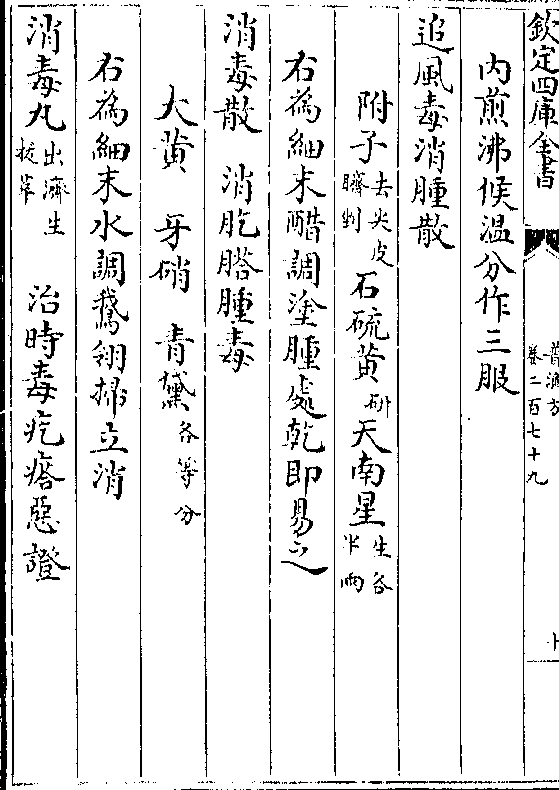 欽定四庫全書
普濟方
卷二百七十九
十
內煎沸候温分作三服
追風毒消腫散
附子去尖皮臍剉 石硫黄研 天南星生各半兩
右為細末醋調塗腫處乾即易之
消毒散 消肐𦞂腫毒
大黄 牙硝 青黛各等分
右為細末水調鵞翎掃立消
消毒丸出濟生拔萃 治時毒疙瘩惡證